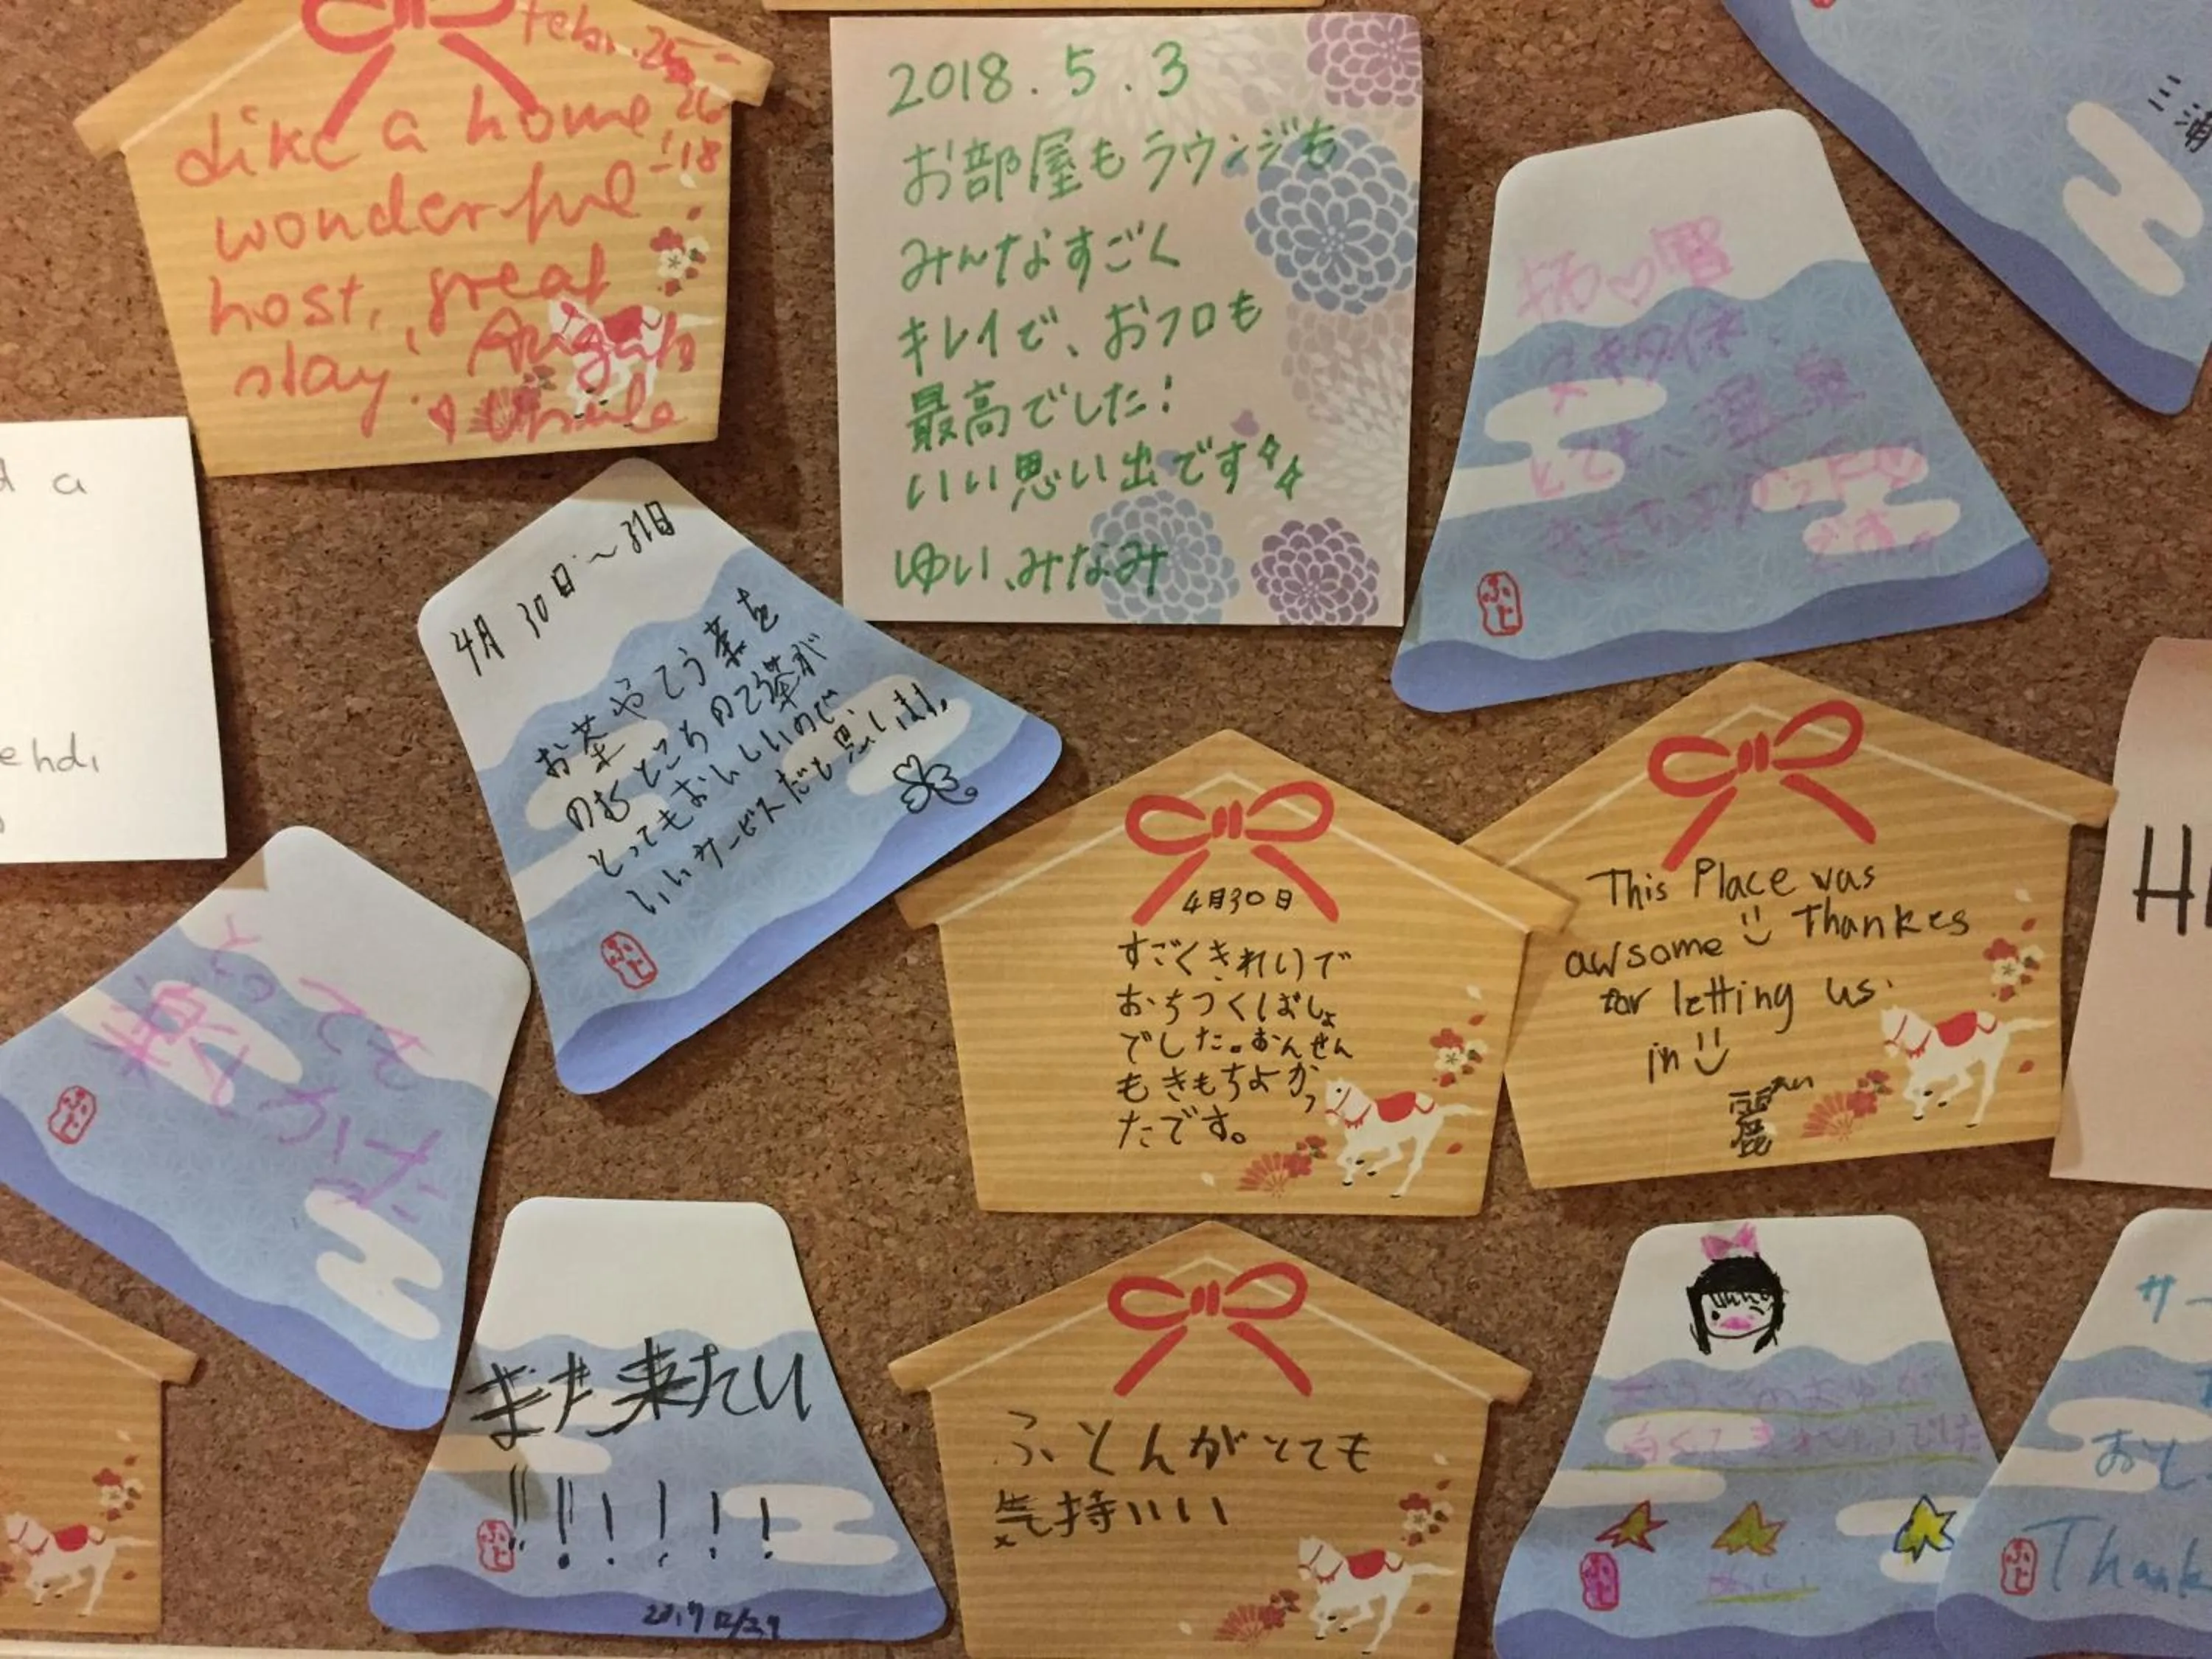 Feb. 25-
26
'18
Like a home
wonderful
host, great
stay!
♡ Ursula
2018.5.3
お部屋もラウンジも
みんなすごく
キレイで、おフロも
最高でした!
いい思い出です
ゆい、みなみ
三浦
d a
ehdi
4月30日~31日
お茶やこう茶を
のむところのこう茶が
とってもおいしいので、
いいサービスだと思います。
ふじ
温泉
ふじ
4月30日
すごくきれいで
おちつくばしょ
でした。おんせん
もきもちよかっ
たです。
This Place was
awsome Thankes
for letting us
in
麗
H
とっても
楽しかった
ふじ
また来たい
!!!!!!!
ふじ
2017 12/29
ふとんがとても
気持いい
ふじ
サー
おし
Thank
ふじ